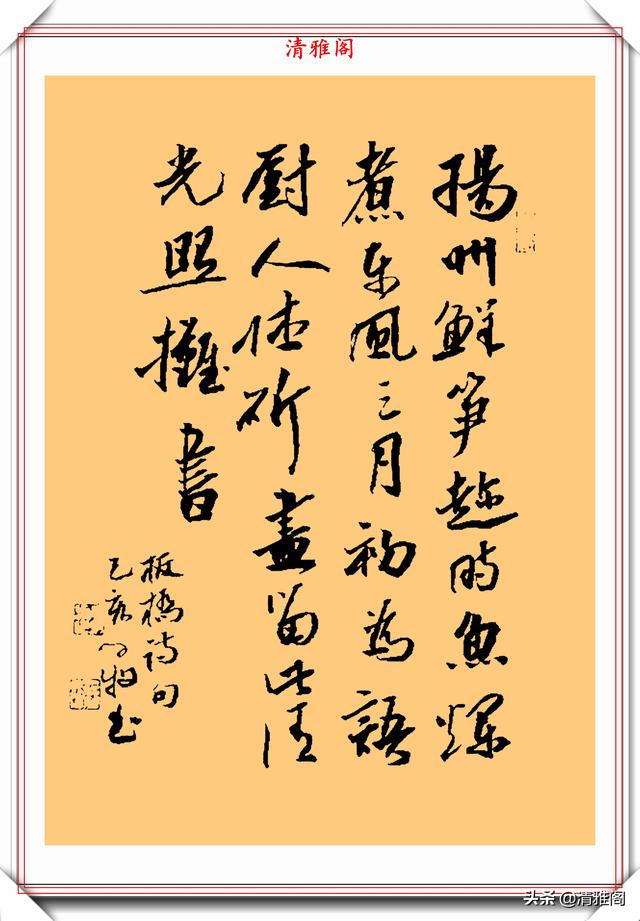 清雅阁
揚州鮮笋趂时魚爛
煮东風三月初為語
厨人休斫盡留此清
光照攤書
板橋詩句
乙亥 书
头条 @清雅阁